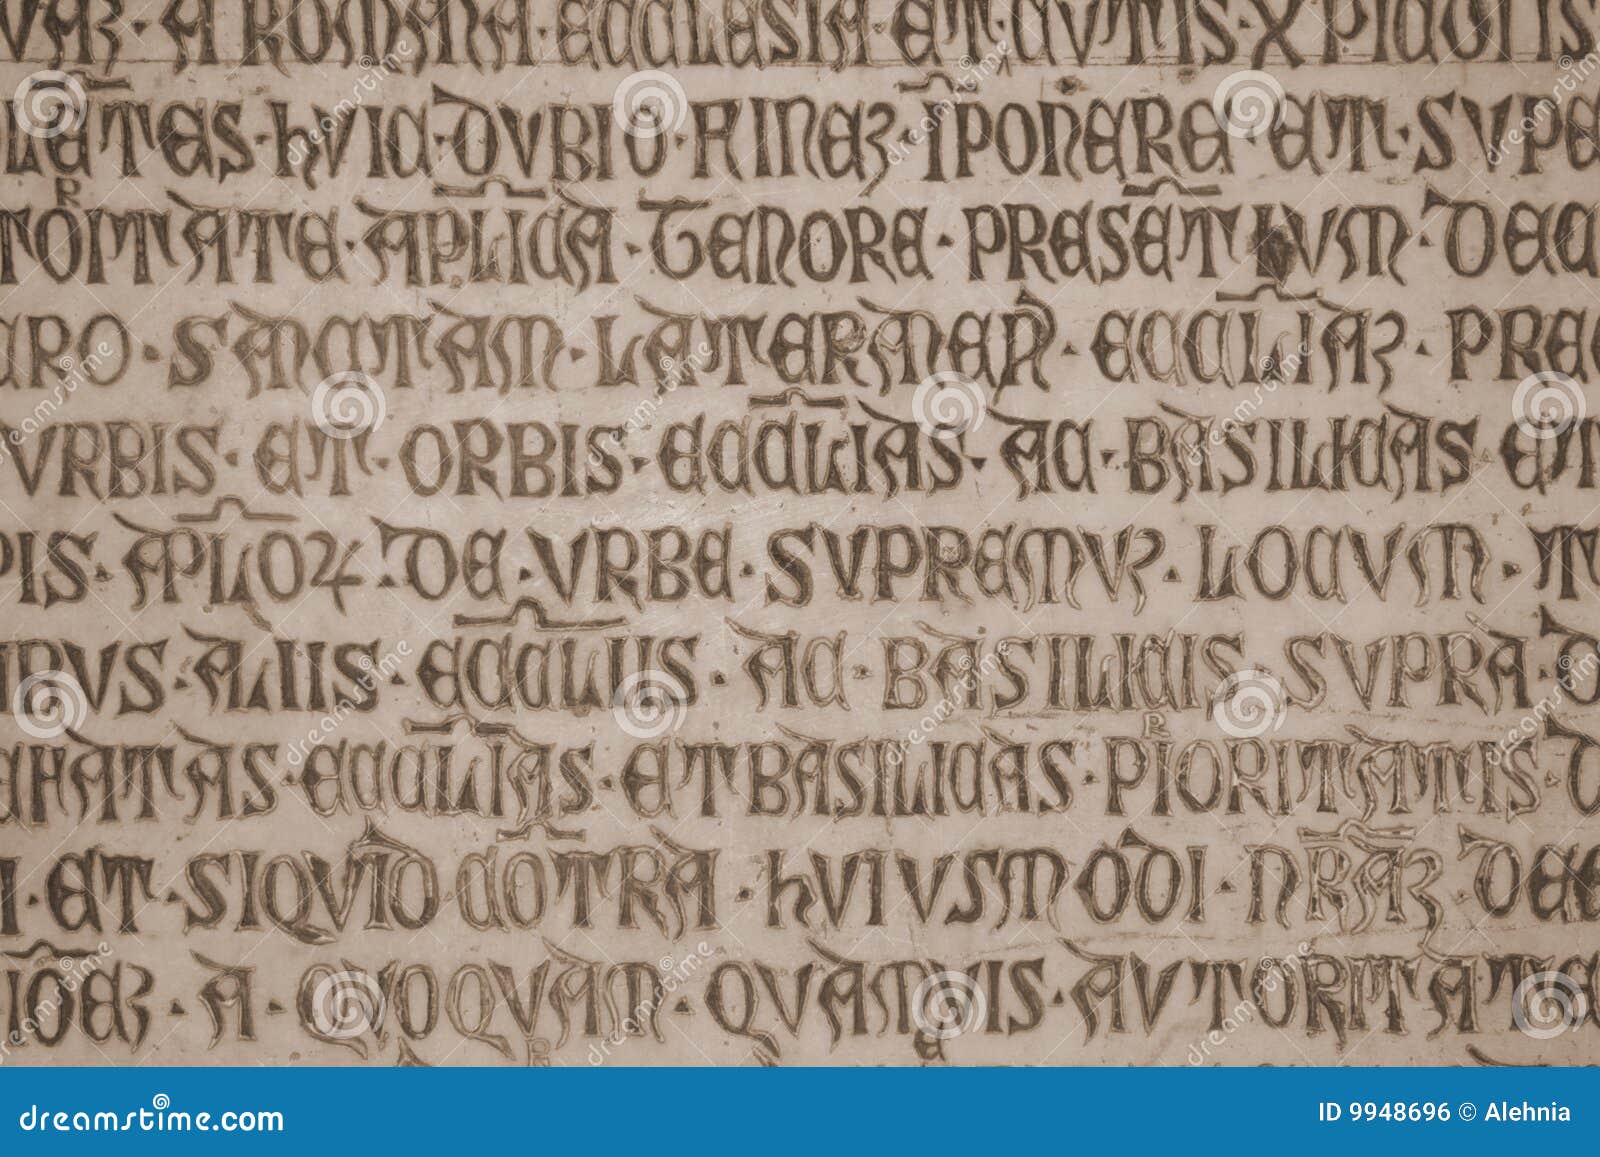 VAꝪ · A ROMANA · ECCLESIA · ET · CVTIS · XPICOLIS
LETES · hVIC · DVBIO · FINEꝪ · IPONERE · ET · SVPE
TOITATE · APLICA · TENORE · PRESETIVM · DEC
CRO · SANCTAM · LATERANEN · ECCLIAꝪ · PRE
VRBIS · ET · ORBIS · ECCLIAS · AC · BASILICAS ET
PIS · APLOꝜ · DE · VRBE · SVPREMVꝪ · LOCVM · T
IBVS · ALIIS · ECCLIIS · AC · BASILICIS · SVPRA · D
CHATAS · ECCLIAS · ET BASILICAS · PIORITATIS · D
I · ET · SIQVID COTRA · hVIVSMODI · NRAꝪ DE
IOEꝪ · A · QVOQVAM · QVAMVIS · AVTORITATE
dreamstime.com
ID 9948696 © Alehnia